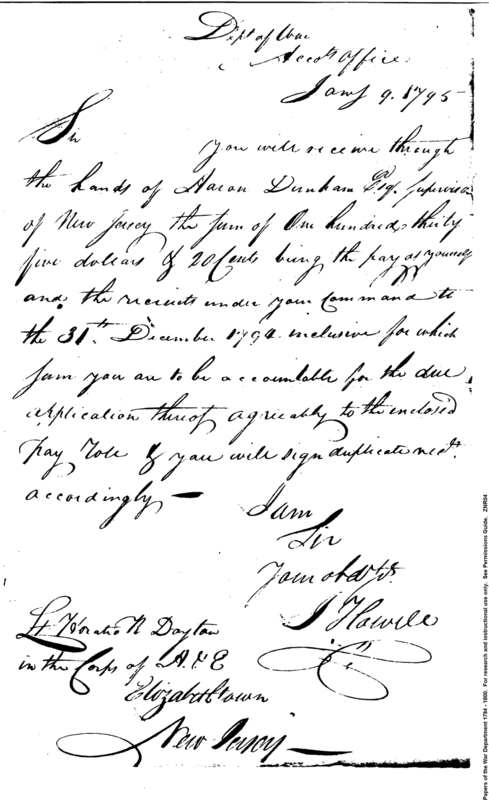 Dept of War
Accots Office
Jany 9. 1795
Sir
you will receive through
the hands of Aaron Dunham Esq. Supervisor
of New Jersey the sum of One hundred thirty
five dollars & 20 Cents being the pay of yourself
and the recruits under your Command to
the 31th December 1794 inclusive for which
sum you are to be accountable for the due
application thereof agreeably to the enclosed
pay Role & you will sign duplicate rects.
accordingly —
I am
Sir
Your obdt St
J Howell
Lt Horatio R Dayton
in the Corps of A & E
Elizabethtown
New Jersey —
Papers of the War Department 1784 - 1800. For research and instructional use only. See Permissions Guide. ZNR04